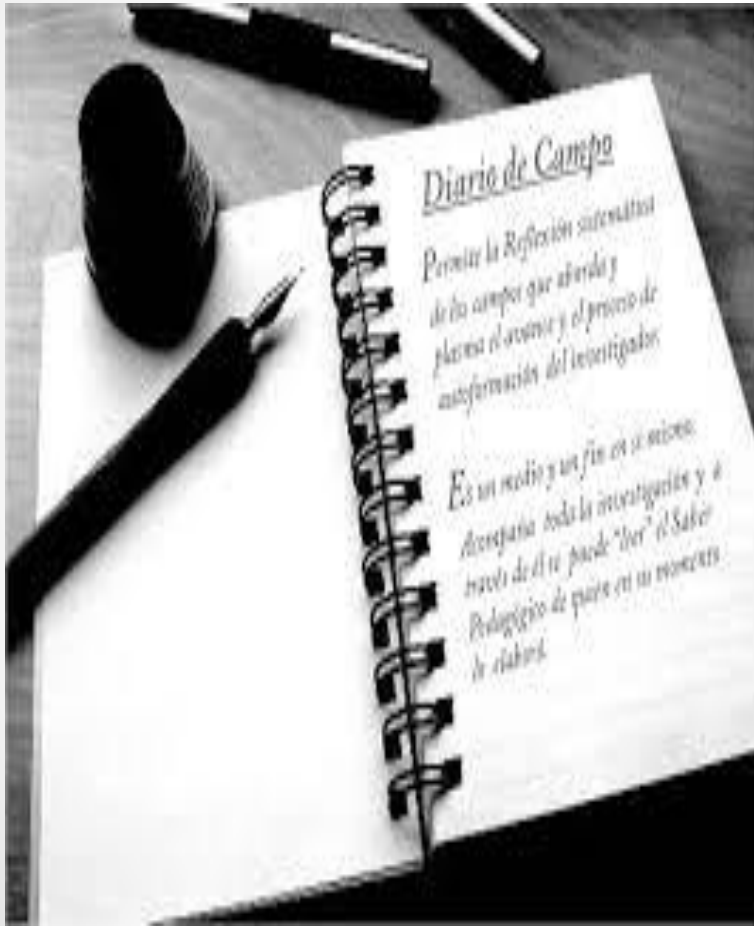 Diario de Campo
Permite la Reflexión sistemática
de los campos que aborda y
plasma el avance y el proceso de
autoformación del investigador.
Es un medio y un fin en si mismo.
Acompaña toda la investigación y a
través de él se puede "leer" el Saber
Pedagógico de quien en su momento
lo elaboró.